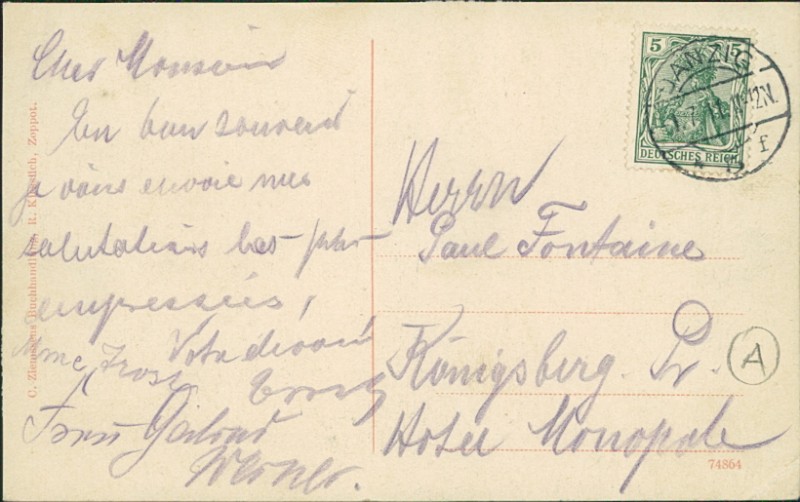 Cher Monsieur
En bon souvenir
je vous envoie mes
salutations les plus
empressées,
Votre dévoué
Ernst
Mme
Frau
Werner.
C. Ziemssens Buchhandlung, R. Zoppot.
5 5
DEUTSCHES REICH
DANZIG
f
Herrn
Paul Fontaine
Königsberg. Pr.
Hotel Monopole
A
74864